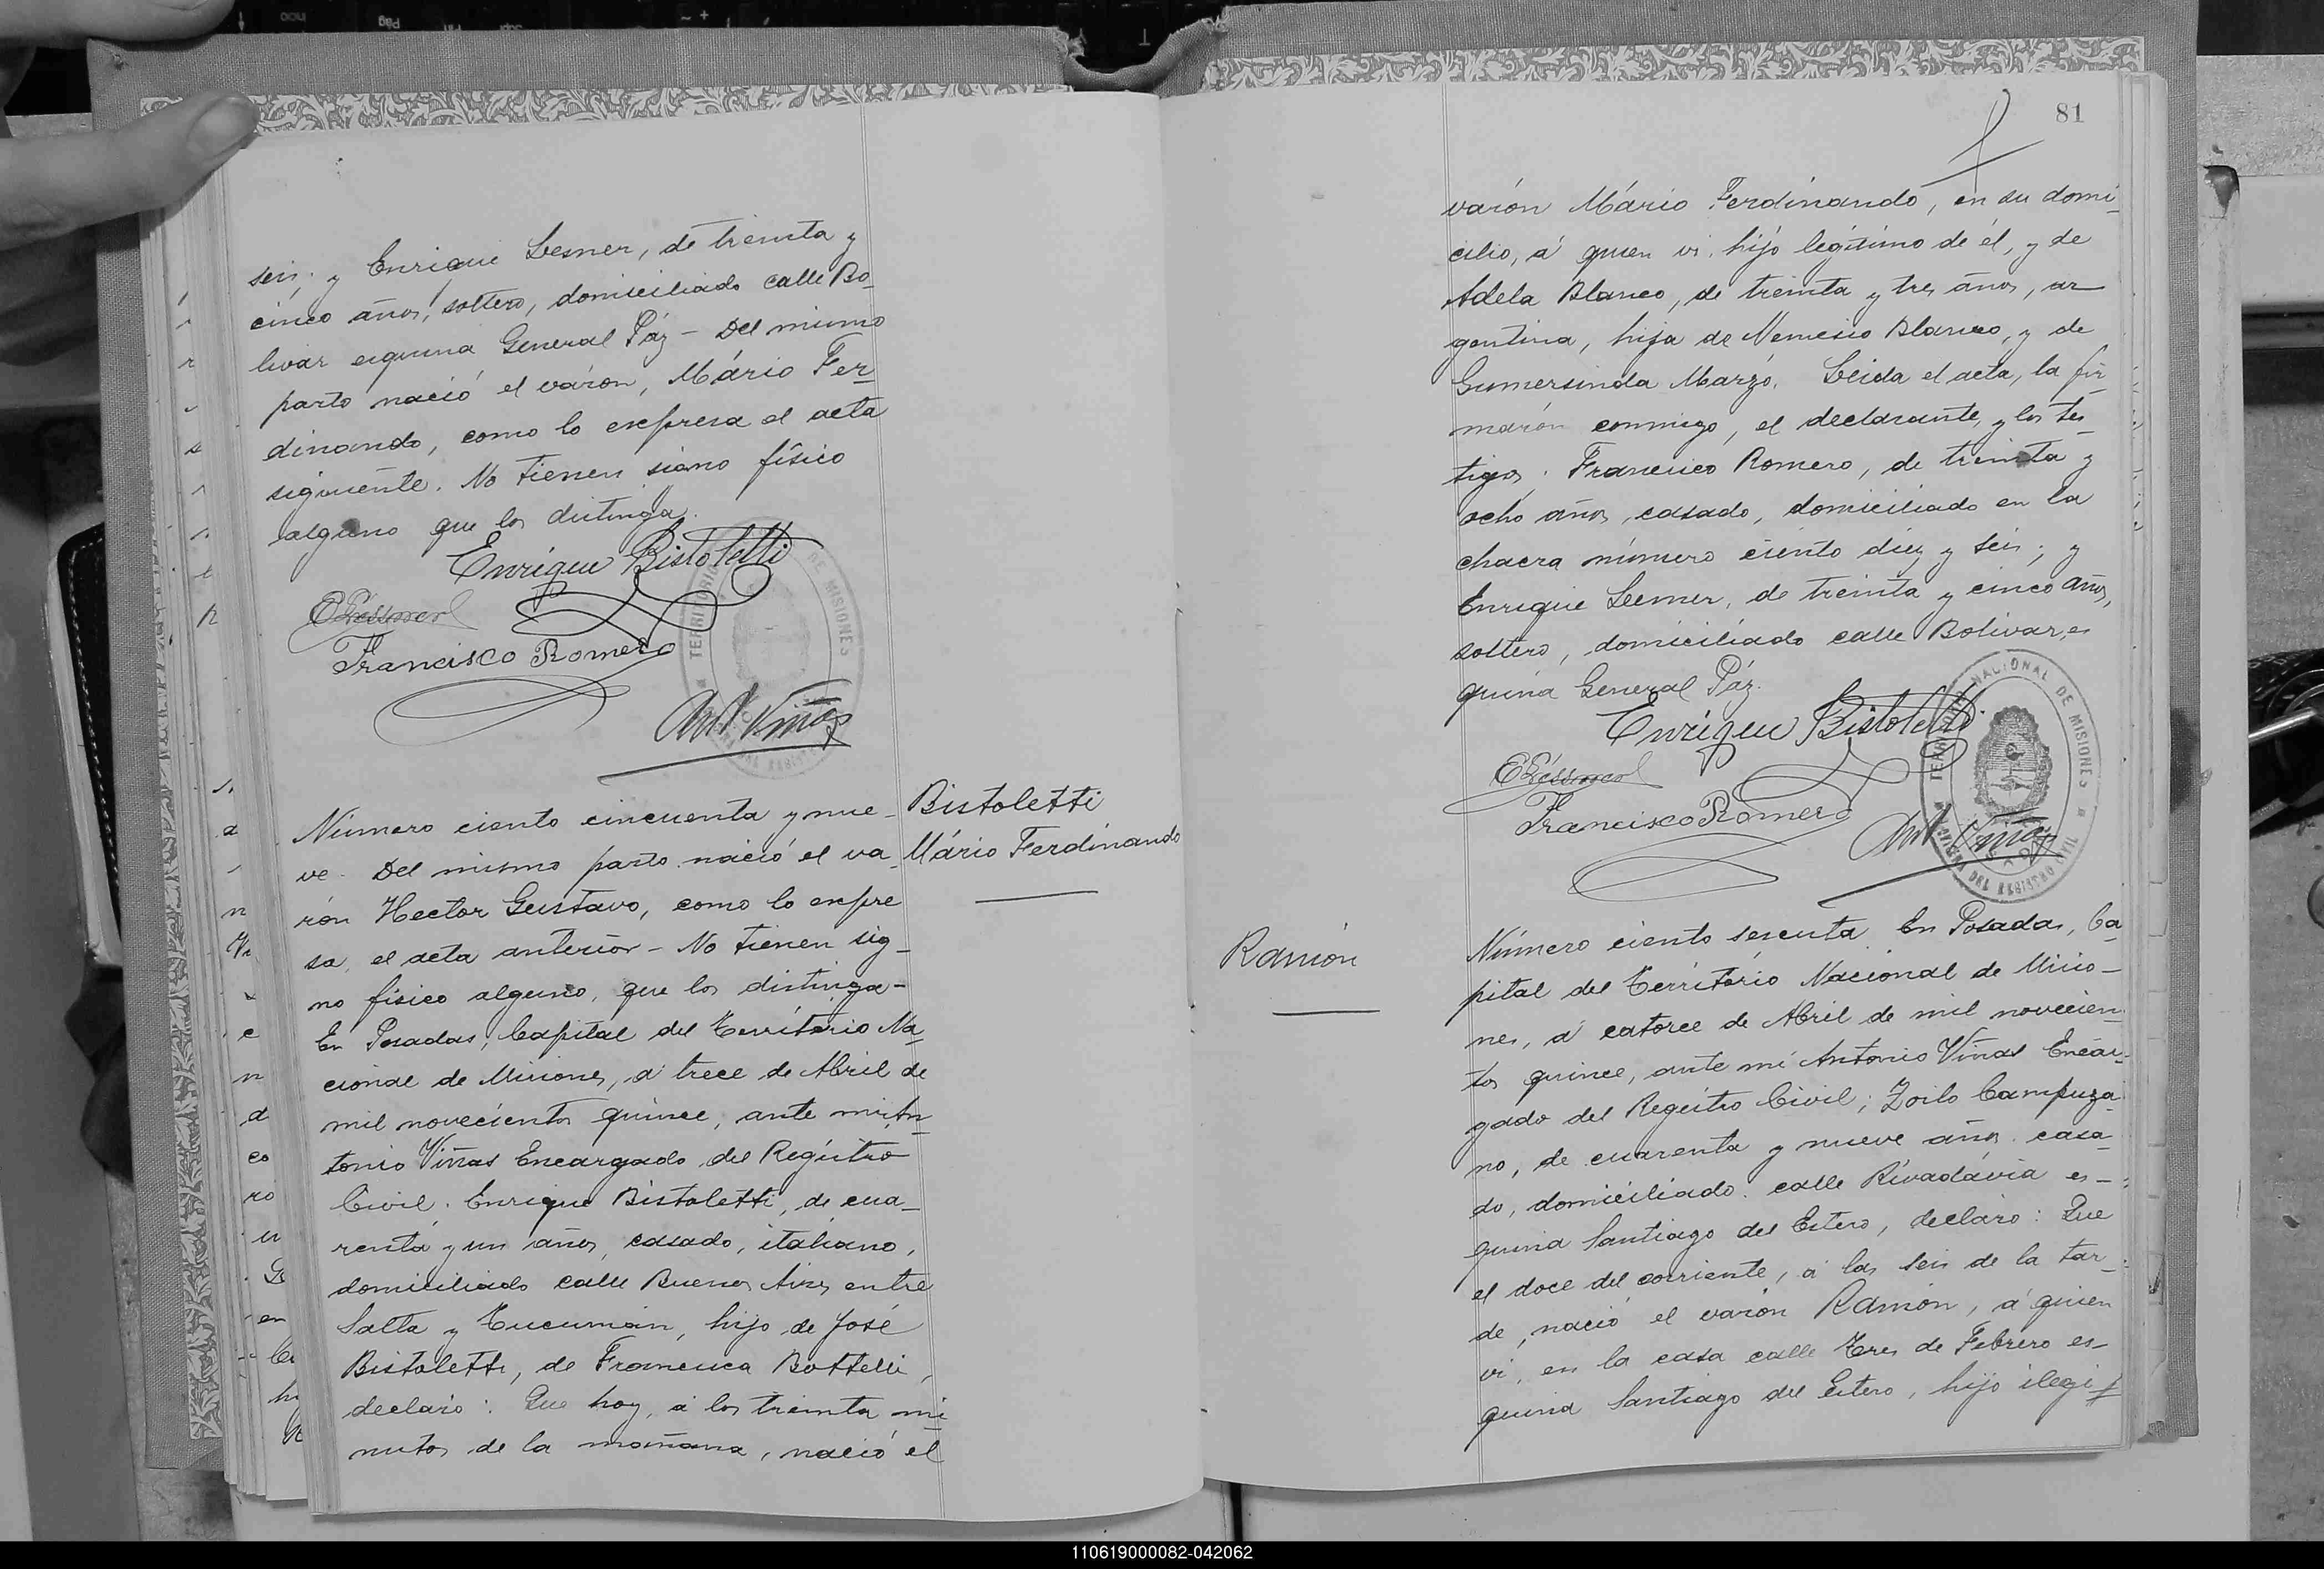 seis; y Enrique Lesner, de treinta y
cinco años, soltero, domiciliado calle Bo_
livar esquina General Páz - Del mismo
parto nació el varón, Mário Fer_
dinando, como lo expresa el acta
siguiente. No tienen signo físico
alguno que los distinga.
Enrique Bistoletti
Francisco Romero
Ant Viñas
Número ciento cincuenta y nue_
ve. Del mismo parto nació el va_
rón Hector Gustavo, como lo expre
sa, el acta anterior - No tienen sig_
no físico alguno, que los distinga -
En Posadas, Capital del Território Na_
cional de Misiones, á trece de Abril de
mil novecientos quince, ante mi An_
tonio Viñas Encargado del Registro
Civil. Enrique Bistoletti, de cua_
renta y un años, casado, italiano,
domiciliado calle Buenos Aires entre
Salta y Tucumán, hijo de José
Bistoletti, de Francisca Bottelli,
declaró: Que hoy, á los treinta mi_
nutos de la mañana, nació el
Bistoletti
Mário Ferdinando
81
varón Mário Ferdinando, en su domi_
cilio, á quien vi, hijo legítimo de él, y de
Adela Blanco, de treinta y tres años, ar_
gentina, hija de Nemesio Blanco, y de
Gumersinda Marzó. Leida el acta, la fir_
marón conmigo, el declarante, y los tes_
tigos. Francisco Romero, de treinta y
ocho años, casado, domiciliado en la
chacra número ciento diez y seis; y
Enrique Lesner, de treinta y cinco años,
soltero, domiciliado calle Bolivar, es
quina General Páz.
Enrique Bistoletti
Francisco Romero
Ant Viñas
TERRITORIO NACIONAL DE MISIONES
Ramón
Número ciento sesenta. En Posadas, Ca_
pital del Território Nacional de Misio_
nes, á catorce de Abril de mil novecien_
tos quince, ante mi Antonio Viñas Encar_
gado del Registro Civil; Zoilo Campuza_
no, de cuarenta y nueve años, casa_
do, domiciliado calle Rivadávia es_
quina Santiago del Estero, declaró: Que
el doce del corriente, á las seis de la tar_
de, nació el varón Ramón, á quien
vi, en la casa calle Tres de Febrero es_
quina Santiago del Estero, hijo ilegi
110619000082-042062